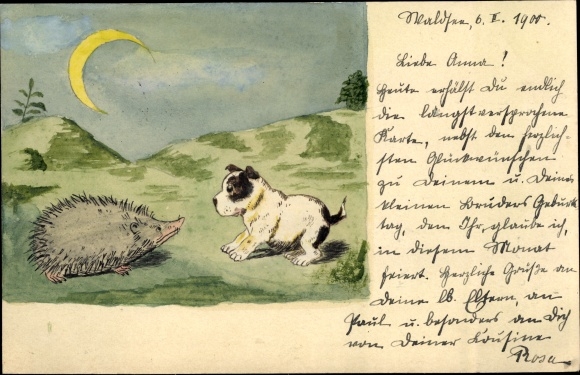 Waldsee, 6. II. 1900.
Liebe Anna!
Heute erhälst Du endlich
die längst versprochene
Karte, nebst den herzlich-
sten Glückwünschen
zu Deinem u. Deines
kleinen Bruders Geburts
tag, den Ihr, glaube ich,
in diesem Monat
feiert. Herzliche Grüße an
Deine lb. Eltern, an
Paul u. besonders an Dich
von Deiner Cousine
Rosa